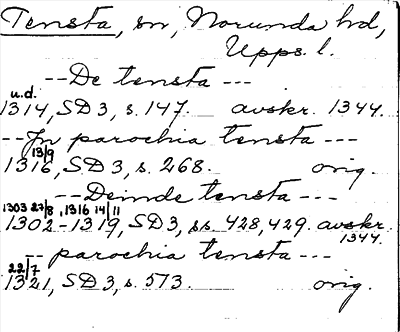 Tensta, sn, Norunda hd,
Upps. l.
--De tensta ---
u.d.
1314, SD 3, s. 147. avskr. 1344.
--In parochia tensta ---
13/9
1316, SD 3, s. 268. orig.
--Deinde tensta ---
1303 27/8, 1316 14/11
1302-1319, SD 3, ss. 428, 429. avskr.
1344.
-- parochia tensta ---
22/7
1321, SD 3, s. 573. orig.